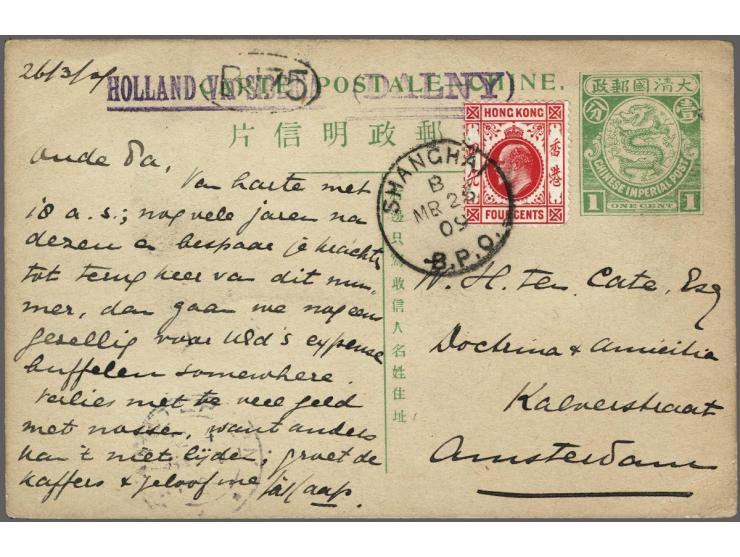 26/3/09
HOLLAND VIA SIB
CARTE POSTALE CHINE.
(DALNY)
片信明政郵
大清國郵政
壹
分
CHINESE IMPERIAL POST
1 ONE CENT 1
HONG KONG
香港
FOUR CENTS
SHANGHAI
B
MR 25
09
B.P.O.
Oude Pa,
Van harte met
18 a.s.; nog vele jaren na
dezen & bespaar je krachten
tot terugkeer van dit num-
mer, dan gaan we nog eens
gezellig voor Uld's expense
buffelen somewhere.
Verlies niet te veel geld
met nassen, want anders
kan 't niet lijden; groet de
kaffers & geloof me
Kaap.
只為收信人名姓住址
W. H. Ten Cate, Esq
Doctrina & Amicitia
Kalverstraat
Amsterdam